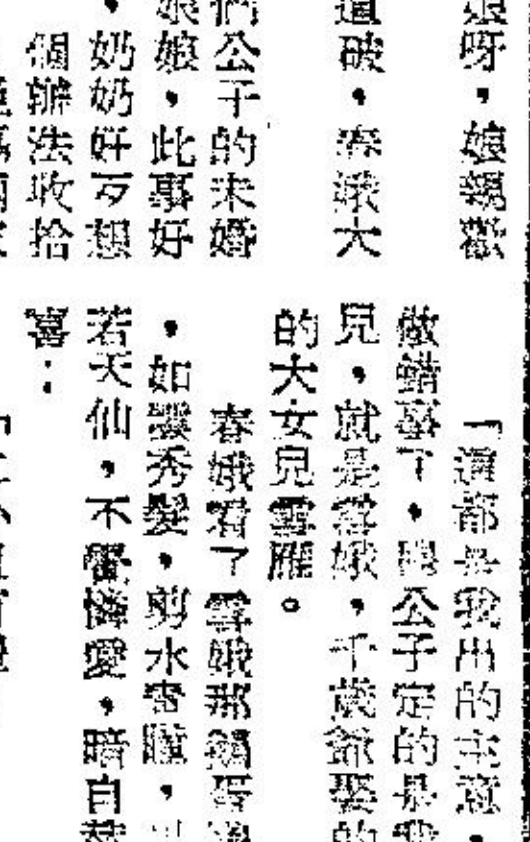 娘呀，娘親歡
道破，春娥大
們公子的未婚
娘娘，此事好
，奶奶好歹想
個辦法收拾
「這都是我出的主意，
做錯事了，與公子定的是我
兒，就是雪娥，千歲爺娶的
的大女兒雪雁。
春娥看了雪娥那鵝蛋臉
，如雲秀髮，剪水雙瞳，
若天仙，不覺憐愛，暗自替
喜：